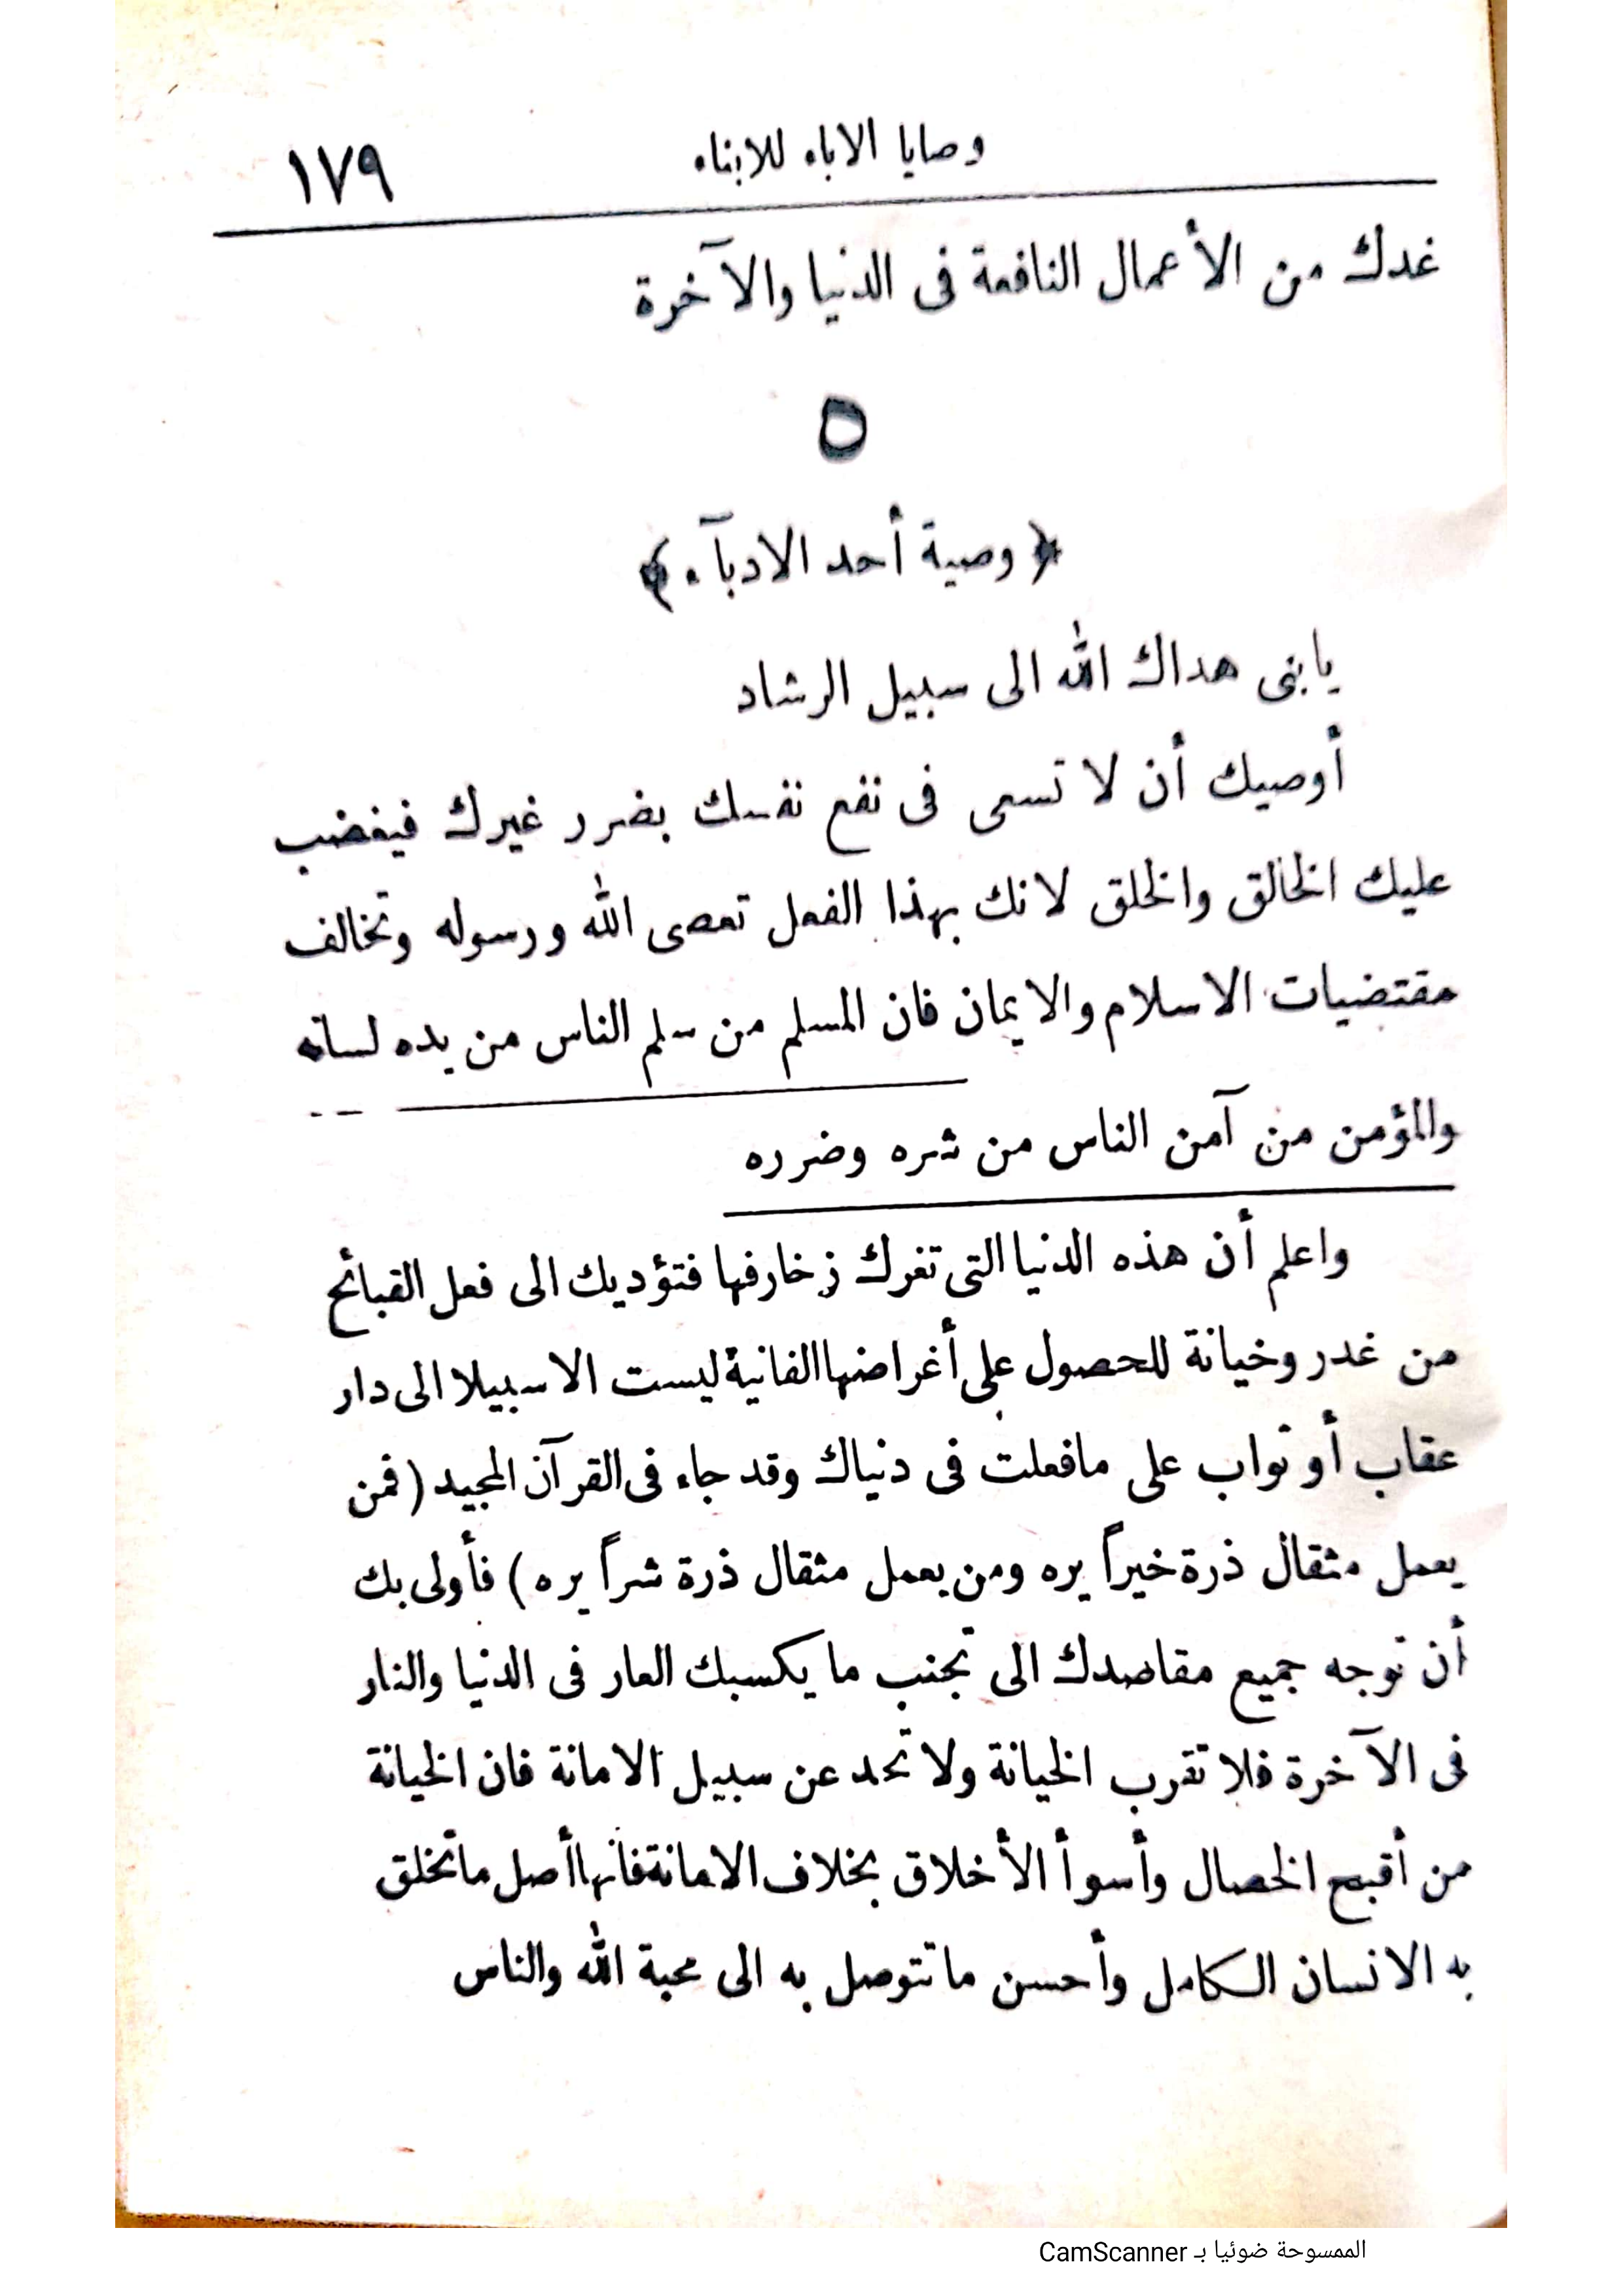 وصايا الاباء للابناء ١٧٩
غدك من الأعمال النافعة فى الدنيا والآخرة
٥
﴿ وصية أحد الادبآء ﴾
يابنى هداك الله الى سبيل الرشاد
أوصيك أن لا تسعى فى نفع نفسك بضرر غيرك فيغضب
عليك الخالق والخلق لانك بهذا الفعل تعصى الله ورسوله وتخالف
مقتضيات الاسلام والايمان فان المسلم من سلم الناس من يده لسانه
والمؤمن من آمن الناس من شره وضرره
واعلم أن هذه الدنيا التى تغرك زخارفها فتؤديك الى فعل القبائح
من غدر وخيانة للحصول على أغراضها الفانية ليست الا سبيلا الى دار
عقاب أو ثواب على مافعلت فى دنياك وقد جاء فى القرآن المجيد (فمن
يعمل مثقال ذرة خيراً يره ومن يعمل مثقال ذرة شراً يره) فأولى بك
أن توجه جميع مقاصدك الى تجنب ما يكسبك العار فى الدنيا والنار
فى الآخرة فلا تقرب الخيانة ولا تحد عن سبيل الامانة فان الخيانة
من أقبح الخصال وأسوأ الأخلاق بخلاف الامانة فانها أصل ماتخلق
به الانسان الكامل وأحسن ما تتوصل به الى محبة الله والناس
الممسوحة ضوئيا بـ CamScanner